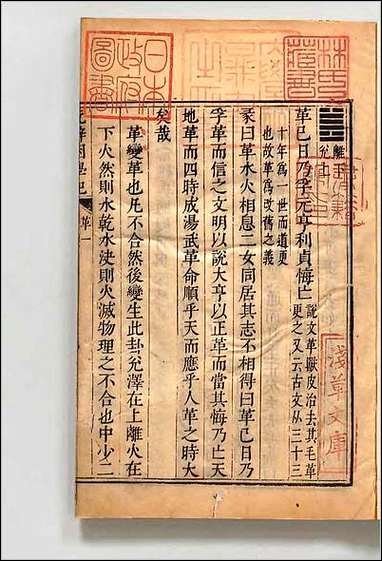 離下
兌上
革已日乃孚元亨利貞悔亡說文革獸皮治去其毛革
更之又云古文从三十
十年爲一世而道更
也故革爲改舊之義
彖曰革水火相息二女同居其志不相得曰革已日乃
孚革而信之文明以說大亨以正革而當其悔乃亡天
地革而四時成湯武革命順乎天而應乎人革之時大
矣哉
革變革也凡不合然後變生此卦兌澤在上離火在
下火然則水乾水決則火滅物理之不合也中少二
革一
日本
政府
圖書
淺草文庫
林氏
藏書